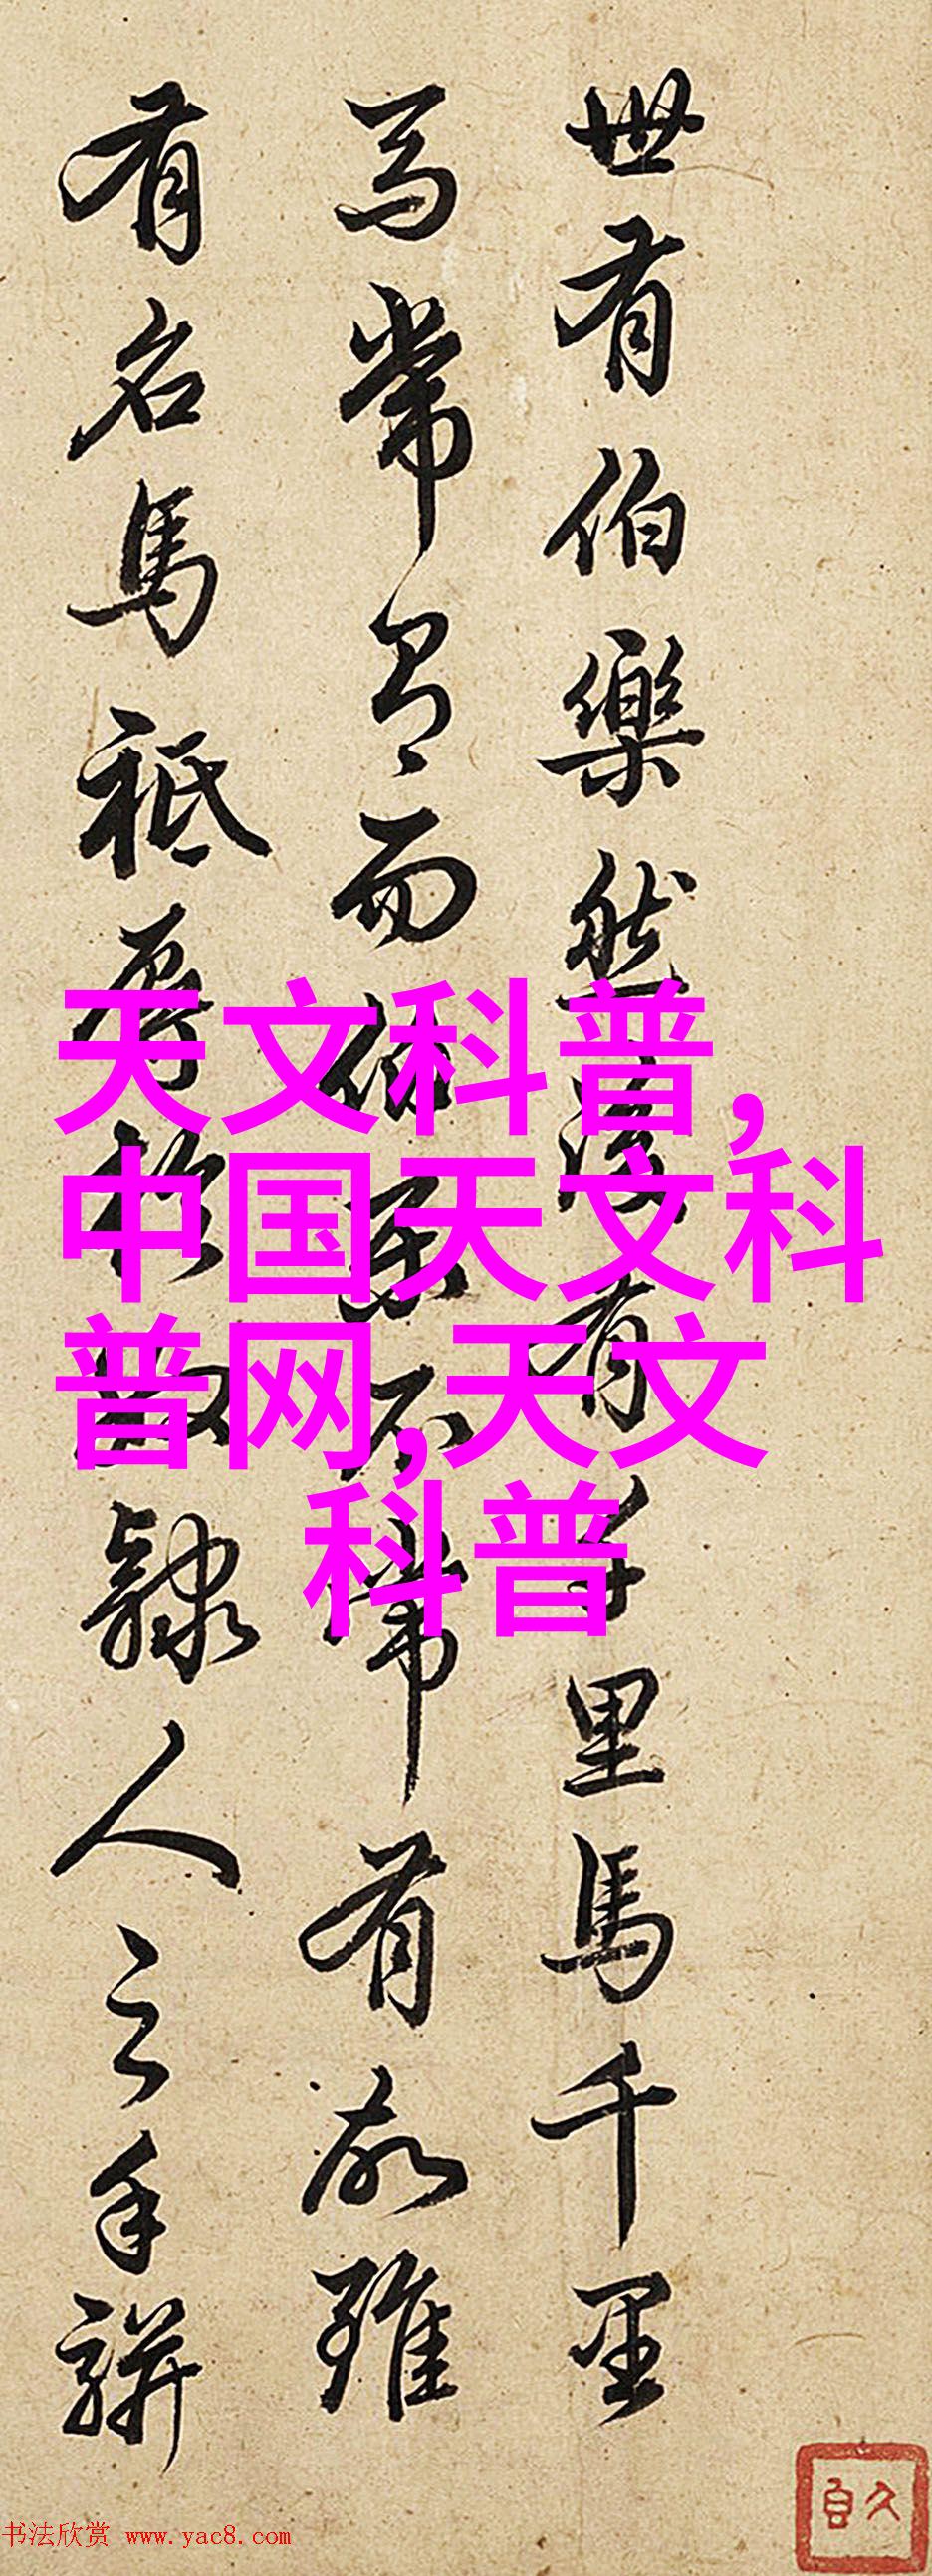 世有伯樂然後有千里馬千里
馬常有而伯樂不常有故雖
有名馬祇辱於奴隸人之手駢
天文科普,
中国天文科
普网,天文
科普
书法欣赏 www.yac8.com